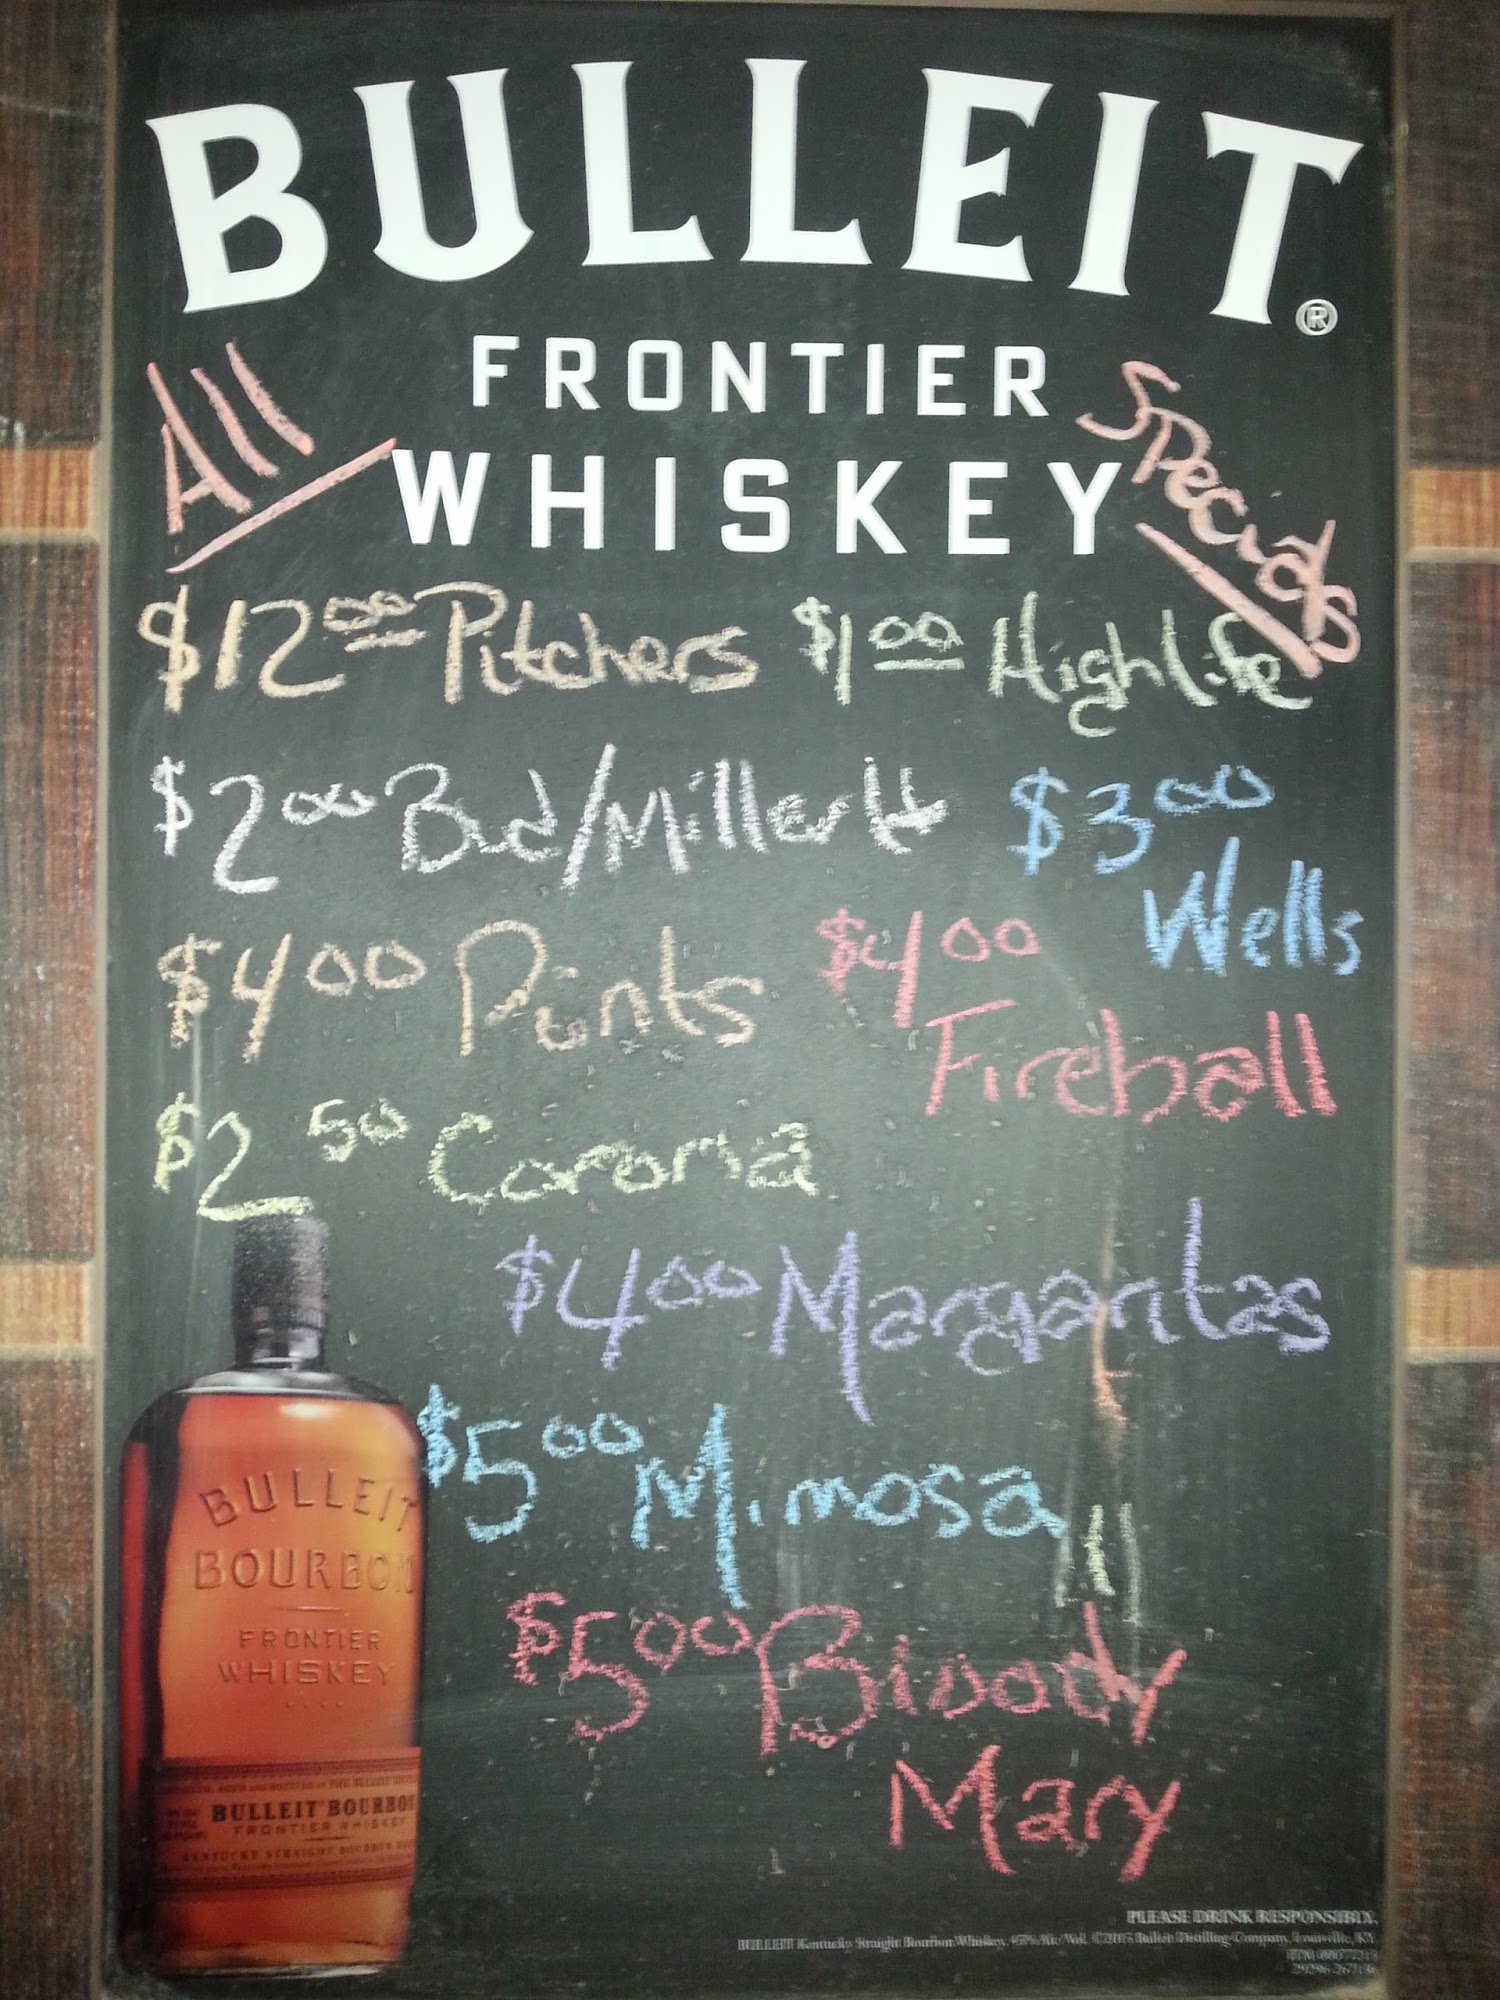 BULLEIT®
FRONTIER
WHISKEY
All Specials
$12.00 Pitchers
$1.00 Highlife
$2.00 Bud/Miller Lt
$3.00
Wells
$4.00 Pints
$4.00
Fireball
$2.50 Corona
$4.00 Margaritas
$5.00 Mimosa
$5.00 Bloody
Mary
BULLEIT
BOURBON
FRONTIER
WHISKEY
BULLEIT BOURBON
FRONTIER WHISKEY
KENTUCKY STRAIGHT BOURBON
PLEASE DRINK RESPONSIBLY.
BULLEIT Kentucky Straight Bourbon Whiskey. 45% Alc/Vol. Bulleit Distilling Company, Louisville, KY.